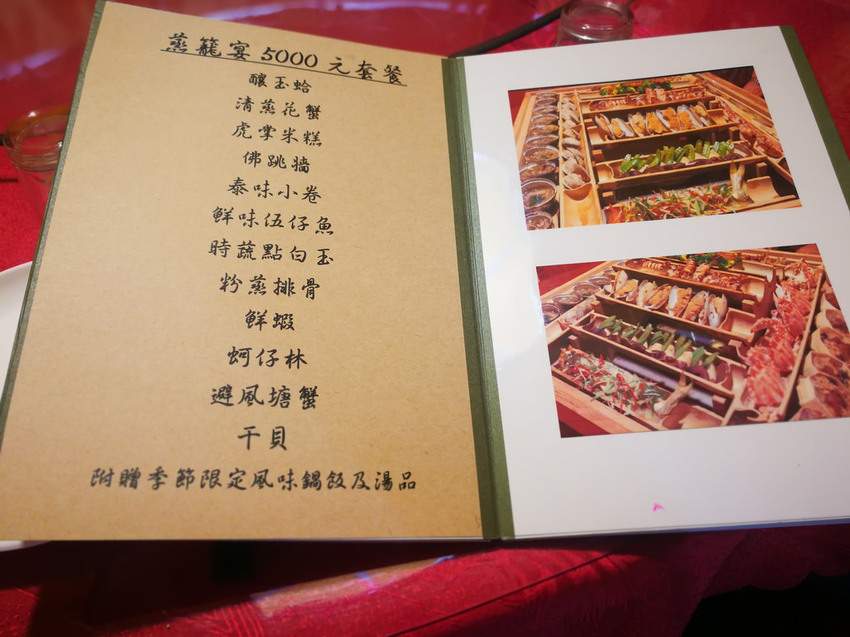 蒸籠宴5000元套餐
釀玉蛤
清蒸花蟹
虎掌米糕
佛跳牆
泰味小卷
鮮味伍仔魚
時蔬點白玉
粉蒸排骨
鮮蝦
蚵仔林
避風塘蟹
干貝
附贈季節限定風味鍋飯及湯品